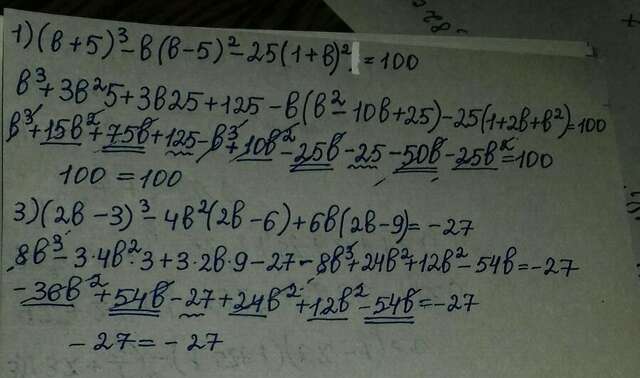 1) (в + 5)³ - в (в - 5)² - 25 (1 + в)² = 100
в³ + 3в²5 + 3в25 + 125 - в(в² - 10в + 25) - 25(1 + 2в + в²) = 100
в³ + 15в² + 75в + 125 - в³ + 10в² - 25в - 25 - 50в - 25в² = 100
100 = 100
3) (2в - 3)³ - 4в²(2в - 6) + 6в(2в - 9) = -27
8в³ - 3·4в²·3 + 3·2в·9 - 27 - 8в³ + 24в² + 12в² - 54в = -27
- 36в² + 54в - 27 + 24в² + 12в² - 54в = -27
- 27 = - 27